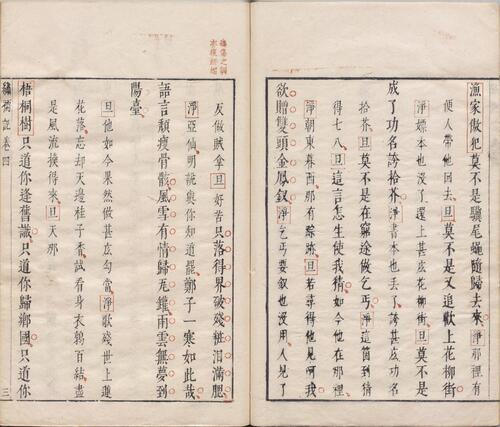 漁家傲犯莫不是驥尾蠅隨歸去來淨那有
便人帶他回去旦莫不是又追歡上花柳街
淨嫖本也沒了還上甚庅花柳街旦莫不是
成了功名誇拾芥淨書本也丟了誇甚庅功名
拾芥旦莫不是在窮途做乞丐淨這箇到猜
得七八旦這言怎生使我猜如今他在那裡
淨朝東暮西那有踪跡旦若尋得他見呵我
欲贈雙頭金鳳釵淨乞丐要釵也沒用人見了
反做賊拿旦好苦只落得界破殘粧泪滿腮
淨亞仙明說與你知道罷鄭子一寒如此哉
語言頹瘦骨骸風雪有情歸雨雲無夢到
陽臺
旦他如今果然做甚庅勾當淨歌殘世上蓮
花落忘却天邊桂子香試看身衣鶉百結盡
是風流換得來旦天那
梧桐樹只道你逢舊識只道你歸鄉國只道你
繡襦記卷四 三